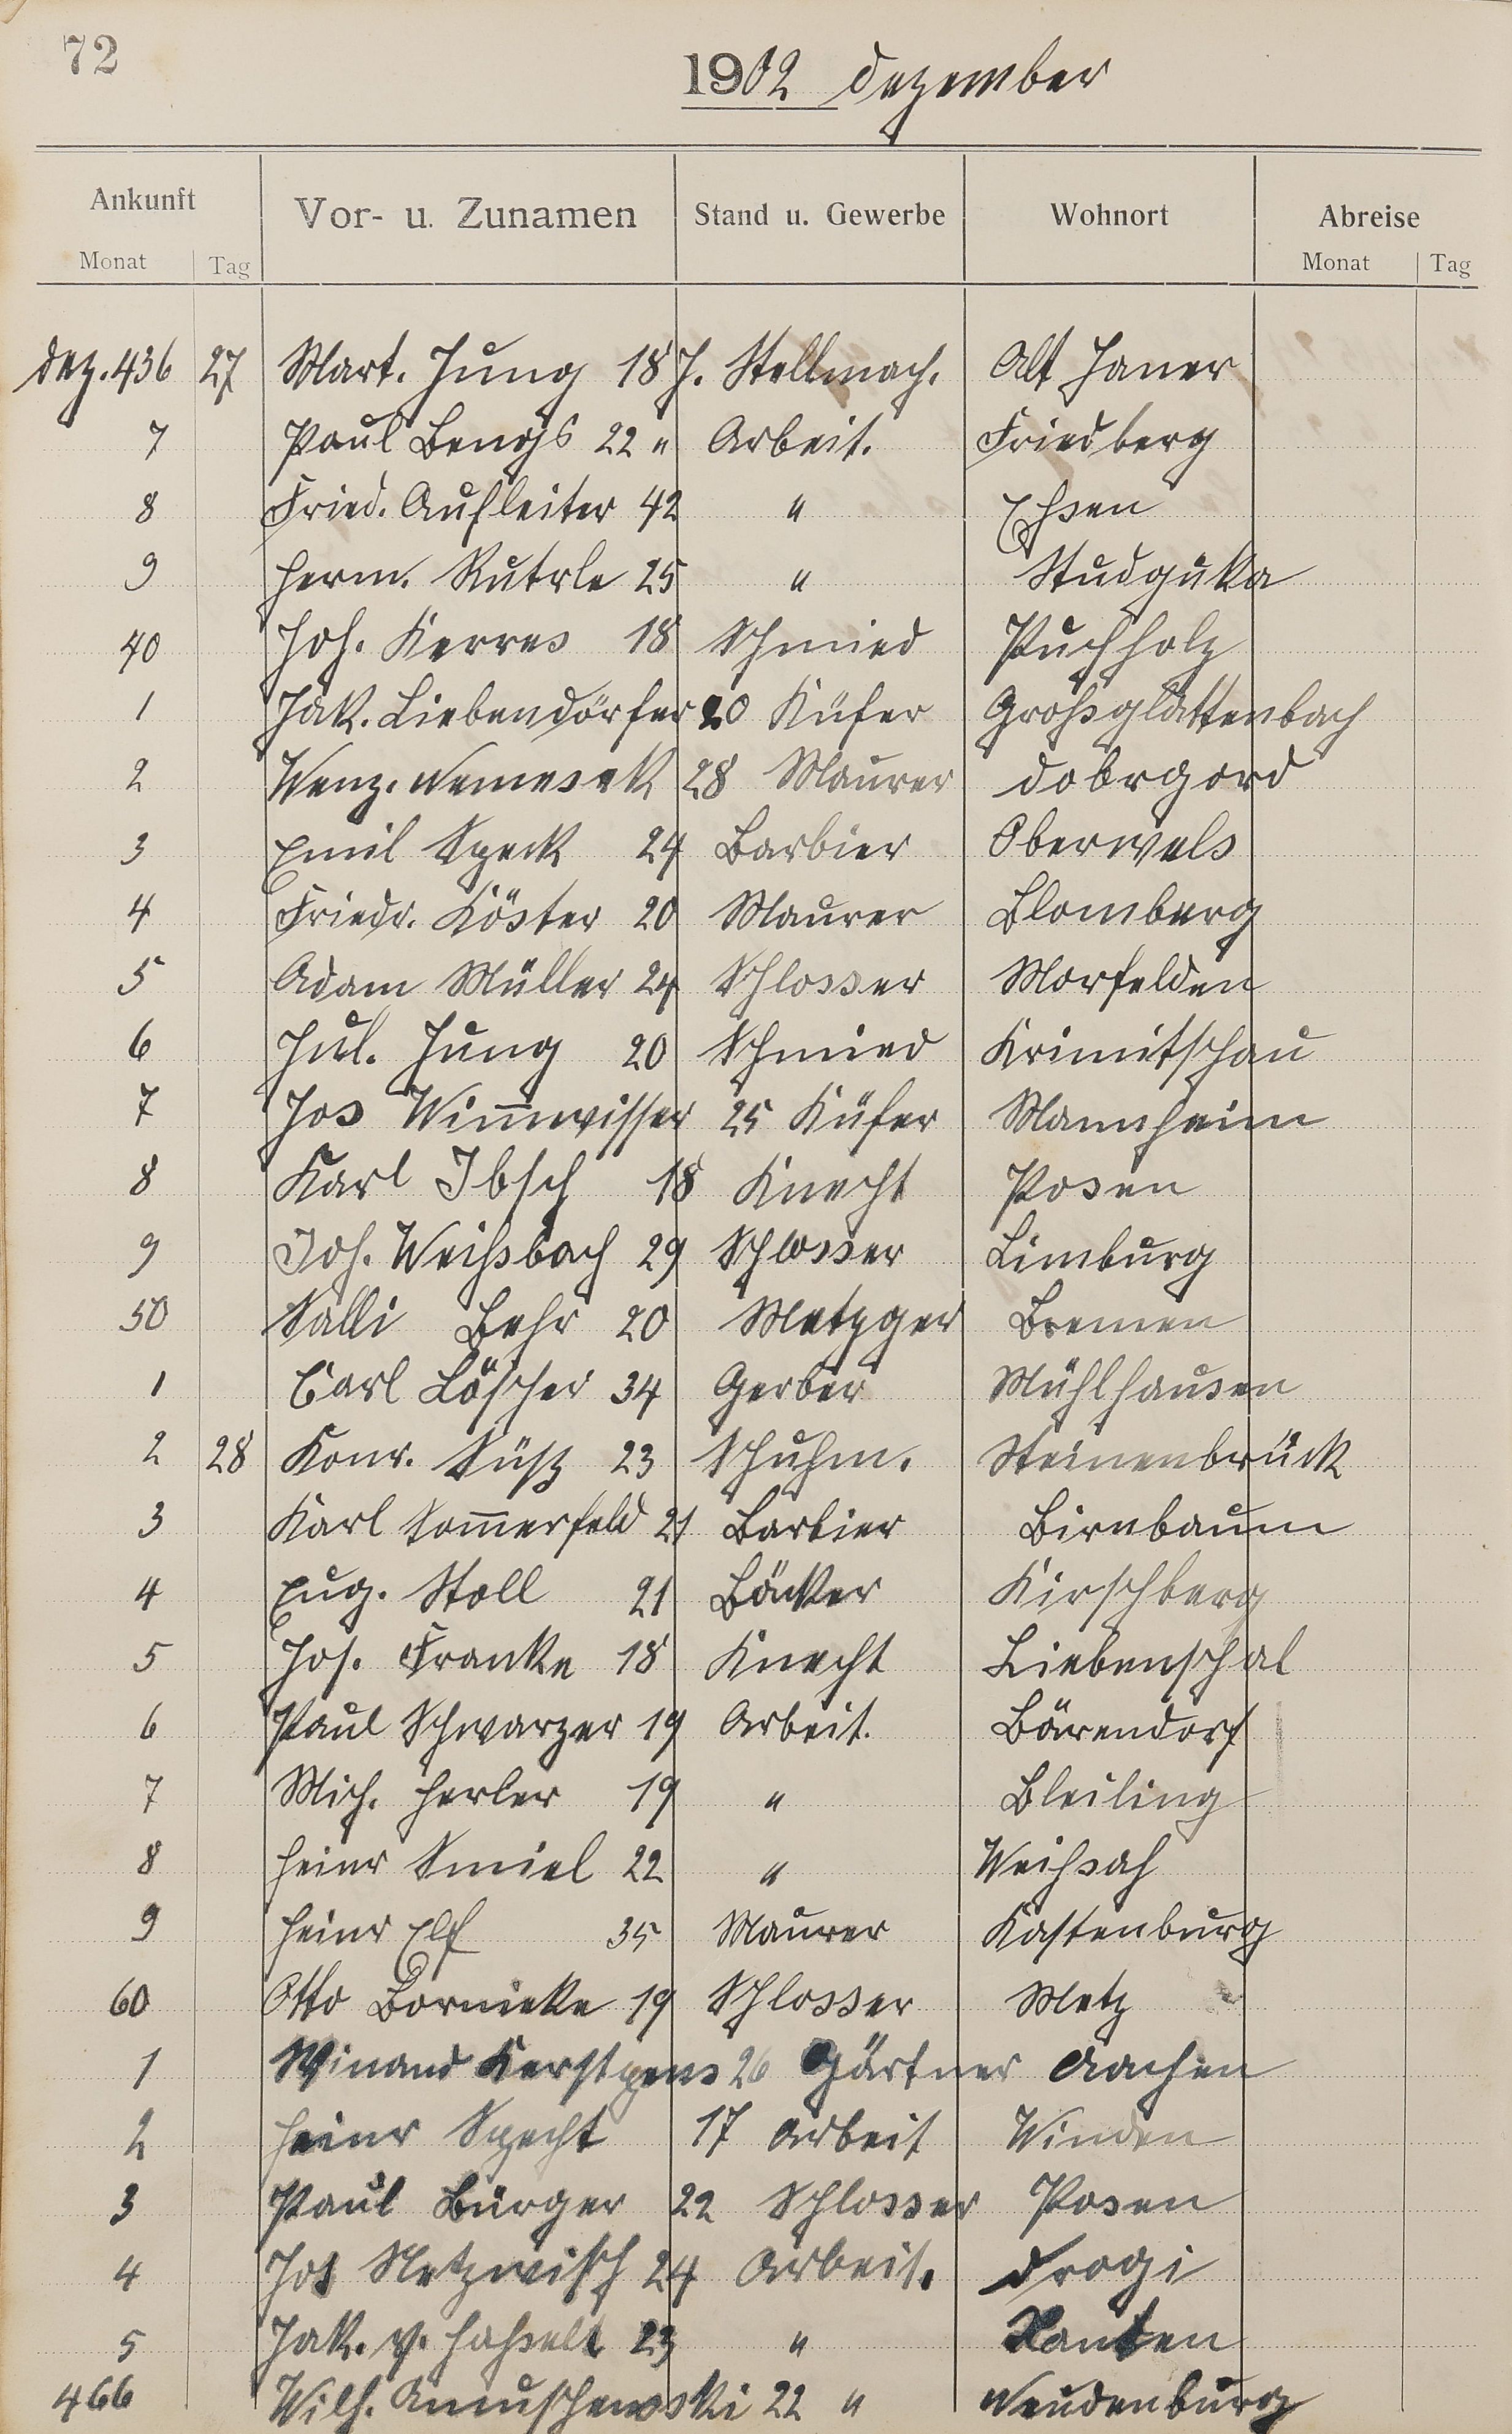 72
1902 Dezember
Ankunft Vor- u. Zunamen Stand u. Gewerbe Wohnort Abreise
Monat Tag Monat Tag
Dez. 436 27 Mart. Jung 18 J. Stellmach. Alt Janer
7 Paul Bengs 22 " Arbeit. Friedberg
8 Fried. Aufleiter 42 " Essen
9 Herm. Rutrle 25 "
40 Joh. Kerres 18 Schmied Puchholz
1 Jak. Liebendörfer 20 Küfer Grossglattenbach
2 Wenz. Nemesek 28 Maurer Dobrgord
3 Emil Speck 24 Barbier Oberwels
4 Friedr. Köster 20 Maurer Blomberg
5 Adam Müller 24 Schlosser Morfelden
6 Jul. Jung 20 Schmied Krimitschau
7 Jos 25 Küfer Mannheim
8 Karl Ibsch 18 Knecht Posen
9 Joh. Weihsbach 29 Schlosser Limburg
50 Salli Behr 20 Metzger Bremen
1 Carl Löscher 34 Gerber Mühlhausen
2 28 Konr. Süß 23 Schuhm. Steinenbrück
3 Karl Som̅erfeld 21 Barbier Birnbaum
4 Eug. Stoll 21 Bäcker Kirschberg
5 Jos. Franke 18 Knecht Liebenschal
6 Paul Schwarzer 19 Arbeit. Bärendorf
7 Mich. Herler 19 " Bleiling
8 Heinr Smiel 22 "
9 Heinr Elf 35 Maurer Kastenburg
60 Otto Bornieke 19 Schlosser Metz
1 Winand Kerstgens 26 Gärtner Aachen
2 Heinr Specht 17 Arbeit Winden
3 Paul Bürger 22 Schlosser Posen
4 Jos Netzwisch 24 Arbeit. Drogi
5 Jak. v. Hahselt 23 " Xanten
466 Wilh. 22 " Neudenburg